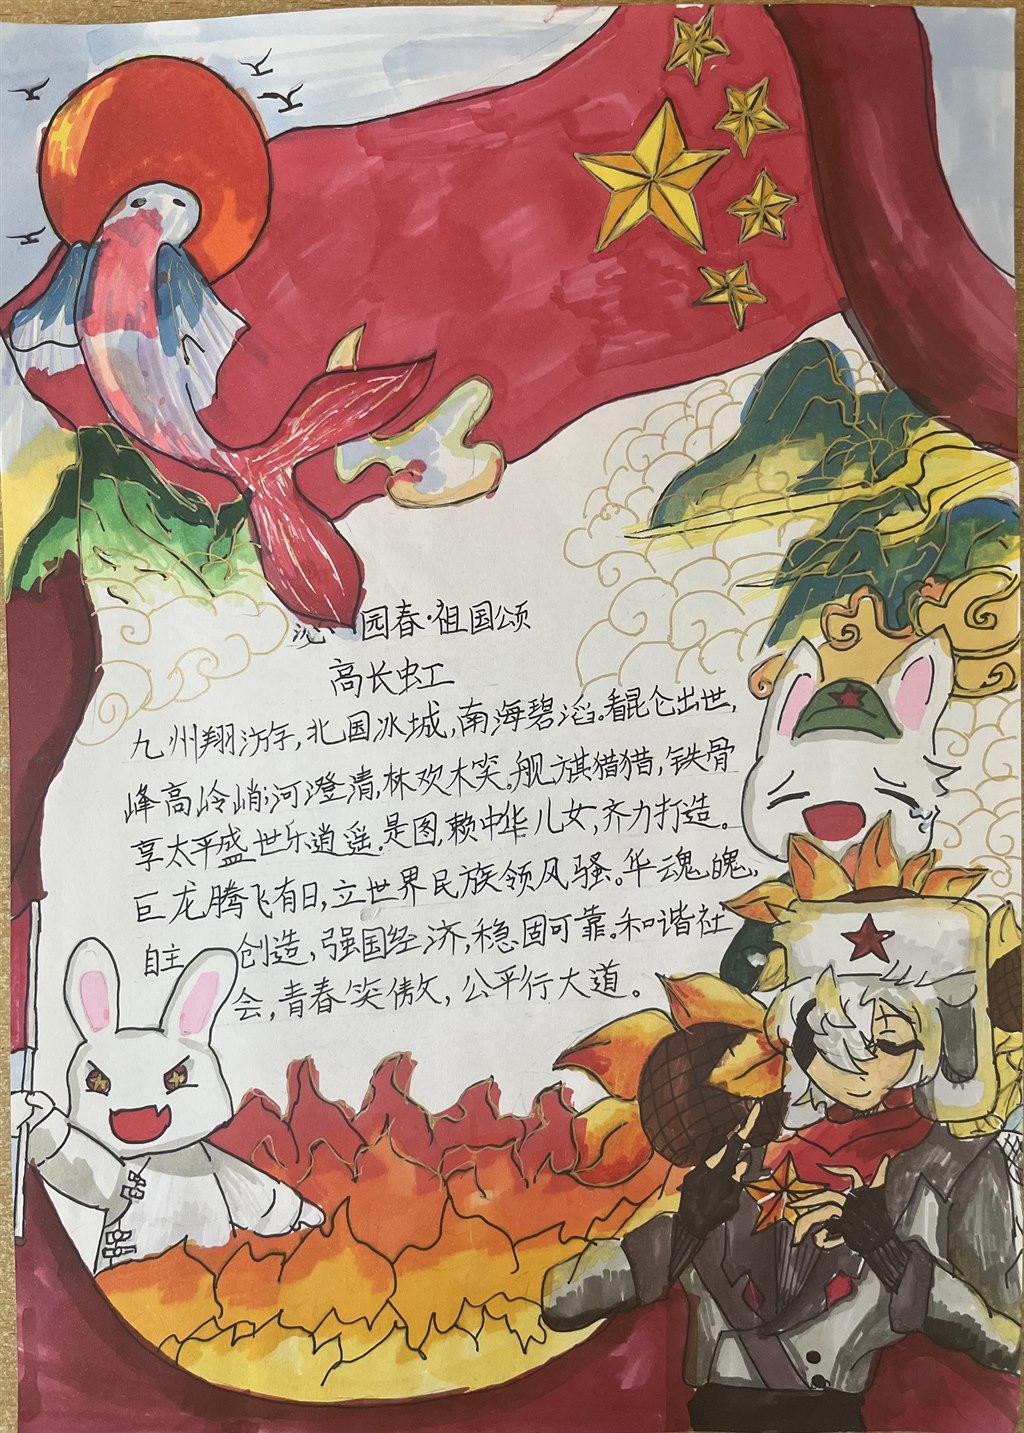 沁园春·祖国颂
高长虹
九州翔游,北国冰城,南海碧滔。看昆仑出世,
峰高岭峭;河澄清,林欢木笑。舰旗猎猎,铁骨
享太平盛世乐逍遥。是图,赖中华儿女,齐力打造。
巨龙腾飞有日,立世界民族领风骚。华魂魄,
自主 创造,强国经济,稳固可靠。和谐社
会,青春笑傲,公平行大道。